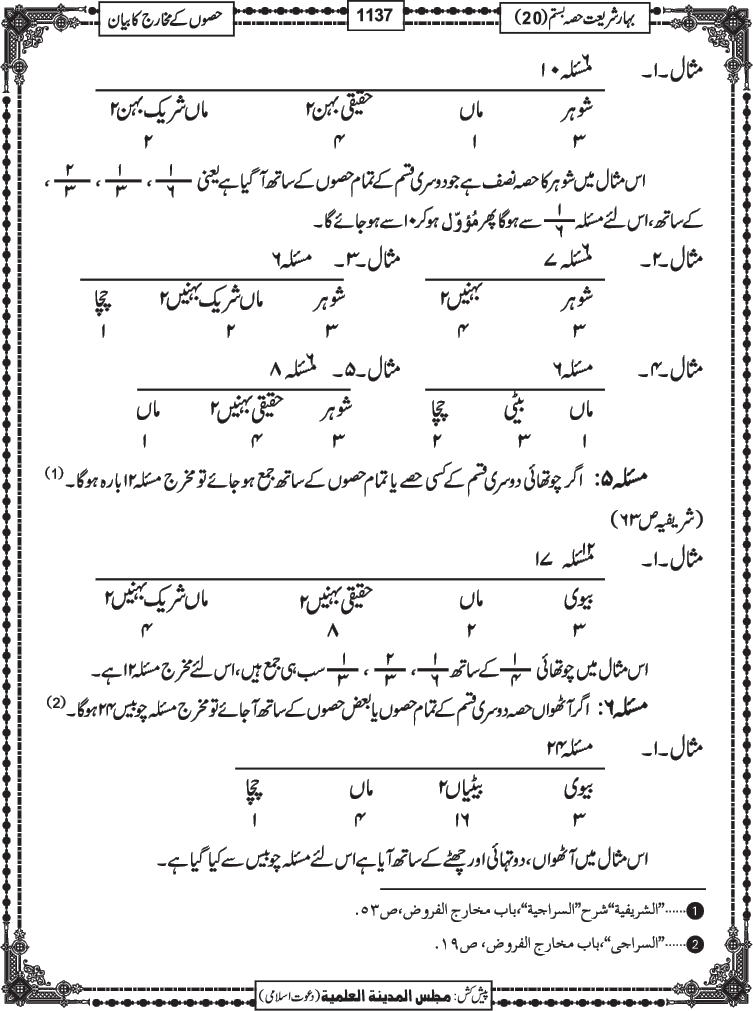 بہارِ شریعت حصہ بستم (20)
1137
حصوں کے مخارج کا بیان
مثال۔۱۔ مسئلہ ۶ ۱۰
شوہر ماں حقیقی بہن ۲ ماں شریک بہن ۲
۳ ۱ ۴ ۲
اس مثال میں شوہر کا حصہ نصف ہے جو دوسری قسم کے تمام حصوں کے ساتھ آ گیا ہے یعنی ۱/۶ ، ۱/۳ ، ۲/۳ ،
کے ساتھ، اس لئے مسئلہ ۱/۶ سے ہوگا پھر مُؤوّل ہوکر ۱۰ سے ہو جائے گا۔
مثال۔۲۔ مسئلہ ۶ ۷ مثال۔۳۔ مسئلہ ۶
شوہر بہنیں ۲ شوہر ماں شریک بہنیں ۲ چچا
۳ ۴ ۳ ۲ ۱
مثال۔۴۔ مسئلہ ۶ مثال۔۵۔ مسئلہ ۶ ۸
ماں بیٹی چچا شوہر حقیقی بہنیں ۲ ماں
۱ ۳ ۲ ۳ ۴ ۱
مسئلہ ۵: اگر چوتھائی دوسری قسم کے کسی حصے یا تمام حصوں کے ساتھ جمع ہو جائے تو مخرج مسئلہ ۱۲ بارہ ہوگا۔ (1)
(شریفیہ ص ۶۳)
مثال۔۱۔ مسئلہ ۱۲ ۱۷
بیوی ماں حقیقی بہنیں ۲ ماں شریک بہنیں ۲
۳ ۲ ۸ ۴
اس مثال میں چوتھائی ۱/۴ کے ساتھ ۱/۶ ، ۲/۳ ، ۱/۳ سب ہی جمع ہیں، اس لئے مخرج مسئلہ ۱۲ ہے۔
مسئلہ ۶: اگر آٹھواں حصہ دوسری قسم کے تمام حصوں یا بعض حصوں کے ساتھ آ جائے تو مخرج مسئلہ چوبیس ۲۴ ہوگا۔ (2)
مثال۔۱۔ مسئلہ ۲۴
بیوی بیٹیاں ۲ ماں چچا
۳ ۱۶ ۴ ۱
اس مثال میں آٹھواں، دو تہائی اور چھٹے کے ساتھ آیا ہے اس لئے مسئلہ چوبیس سے کیا گیا ہے۔
1 ......"الشريفية" شرح "السراجية"، باب مخارج الفروض، ص ٥٣.
2 ......"السراجی"، باب مخارج الفروض، ص ۱۹.
پیش کش: مجلس المدينة العلمية (دعوتِ اسلامی)